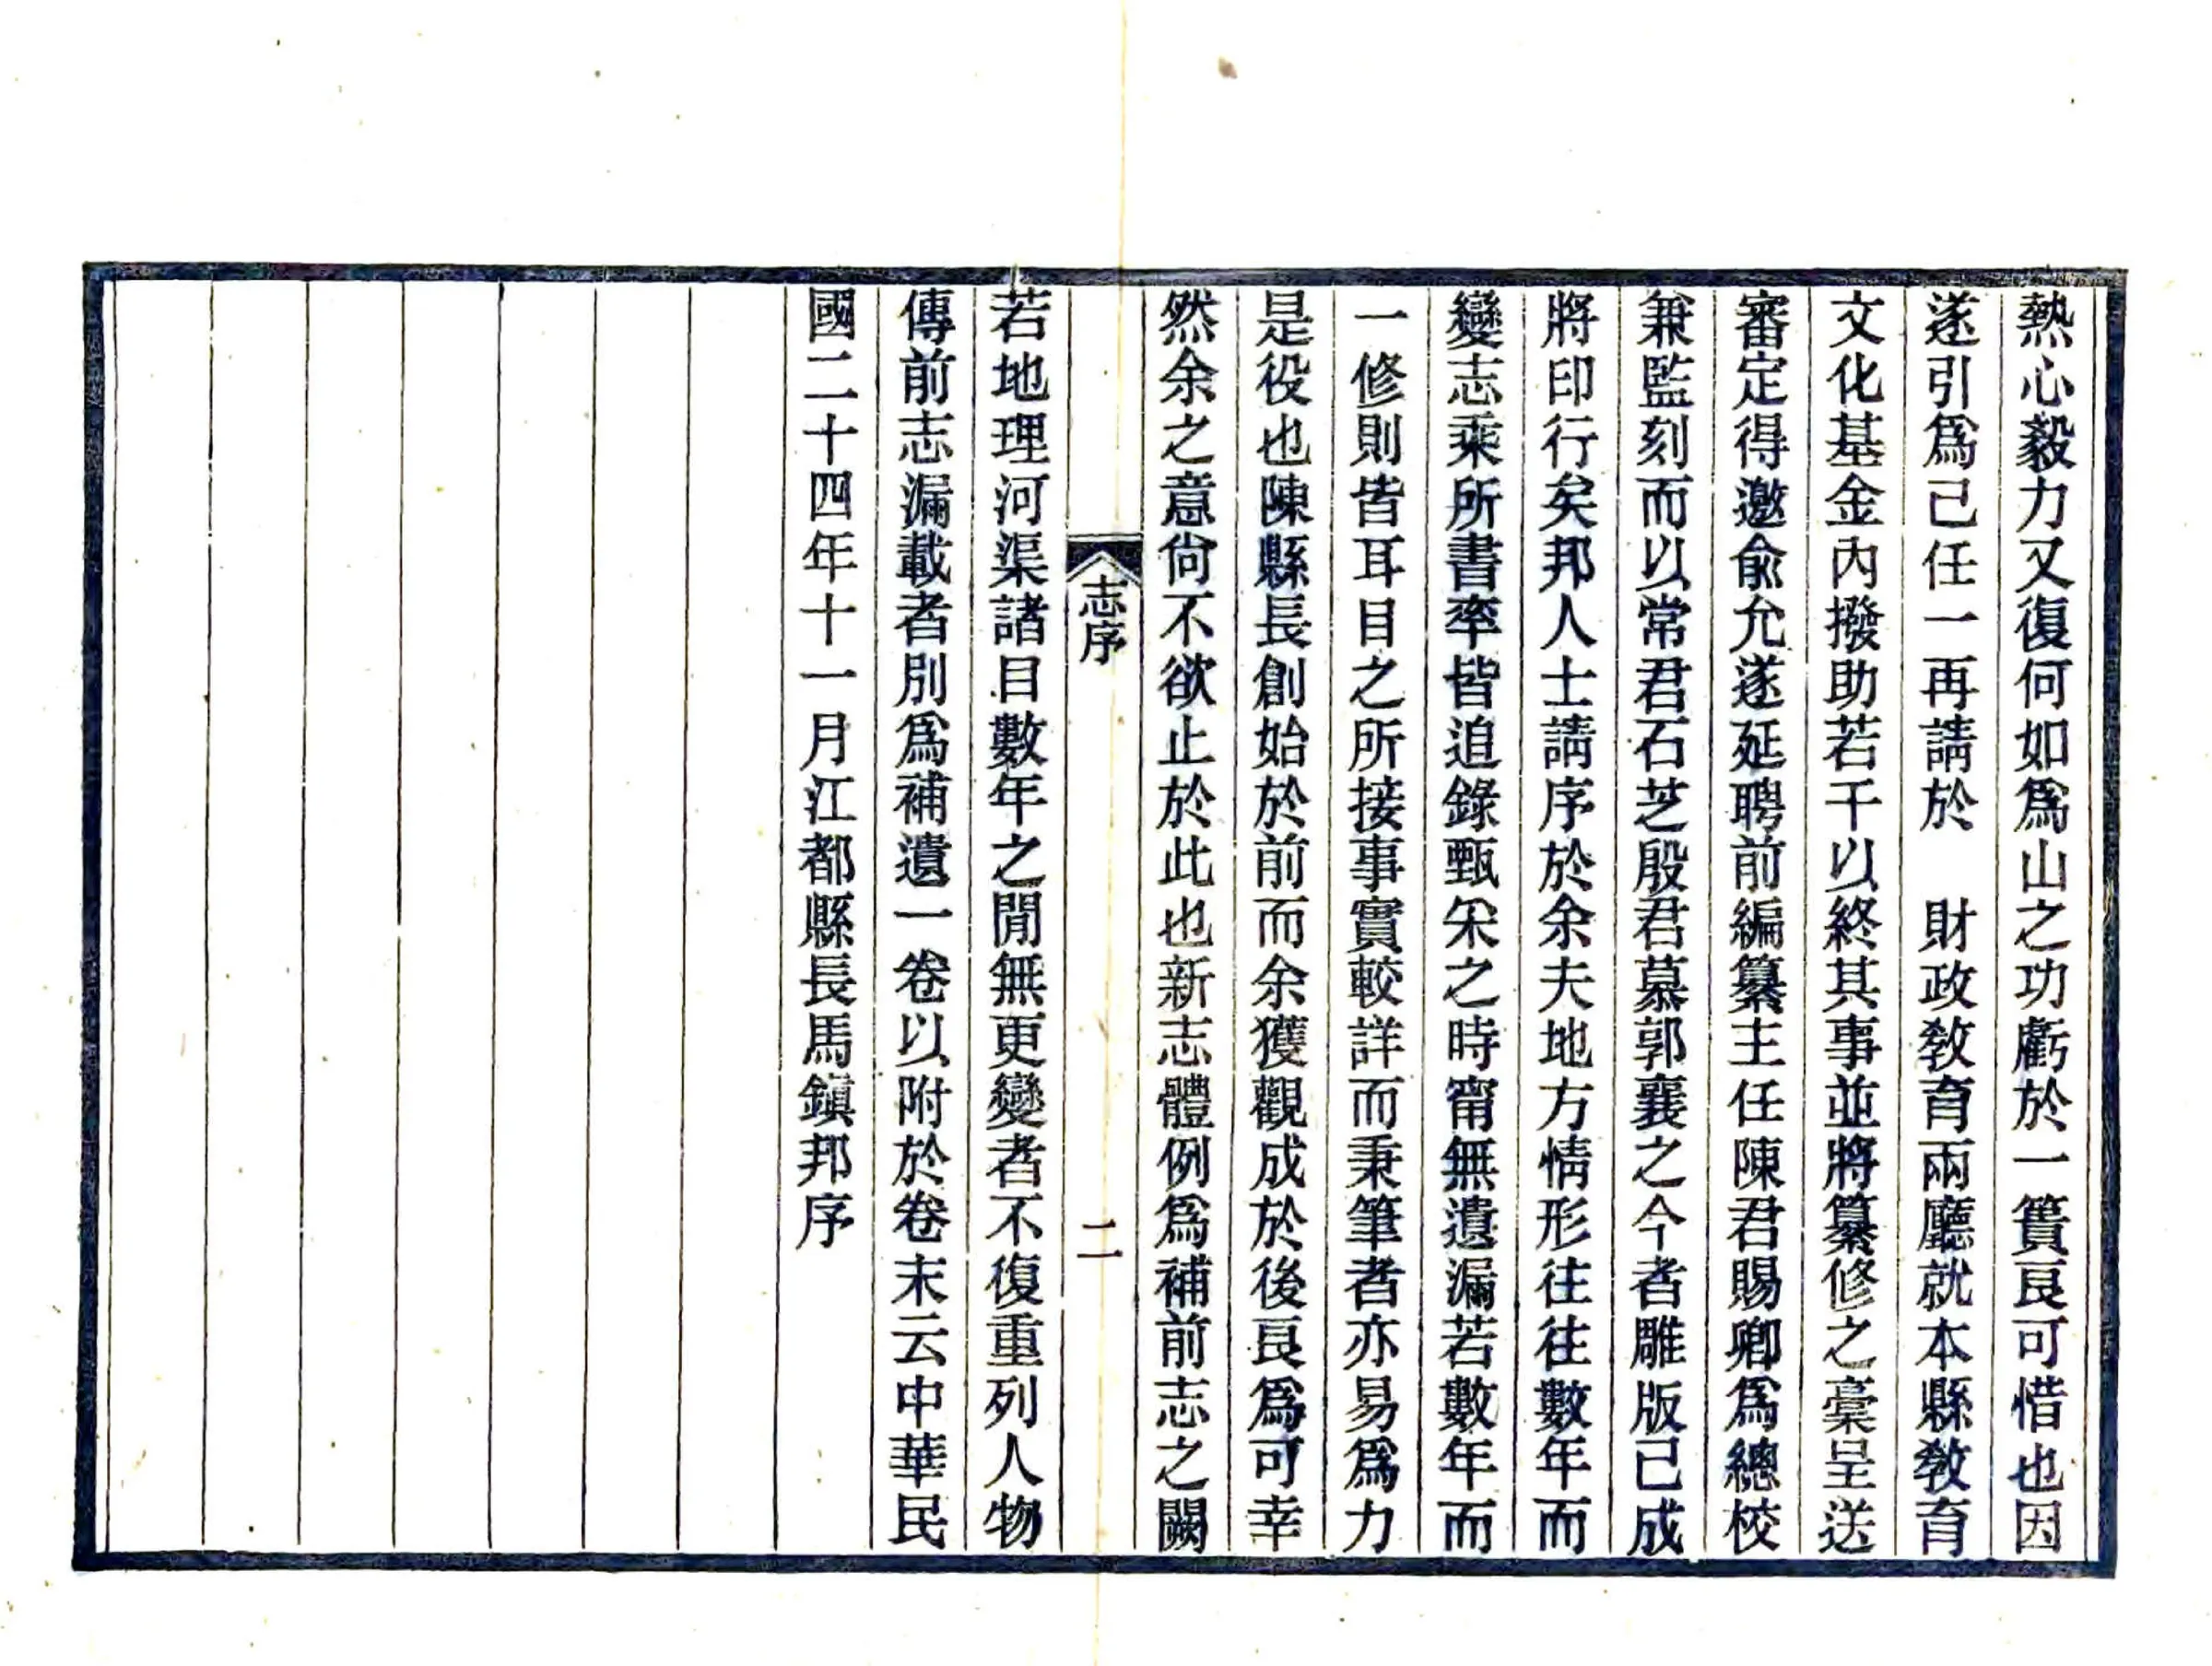 熱心毅力又復何如爲山之功虧於一簣良可惜也因
遂引爲己任一再請於　財政教育兩廳就本縣教育
文化基金內撥助若干以終其事並將纂修之稾呈送
審定得邀俞允遂延聘前編纂主任陳君賜卿爲總校
兼監刻而以常君石芝殷君慕郭襄之今者雕版已成
將印行矣邦人士請序於余夫地方情形往往數年而
變志乘所書率皆追錄甄采之時甯無遺漏若數年而
一修則皆耳目之所接事實較詳而秉筆者亦易爲力
是役也陳縣長創始於前而余獲觀成於後良爲可幸
然余之意尙不欲止於此也新志體例爲補前志之闕
志序
二
若地理河渠諸目數年之閒無更變者不復重列人物
傳前志漏載者別爲補遺一卷以附於卷末云中華民
國二十四年十一月江都縣長馬鎮邦序